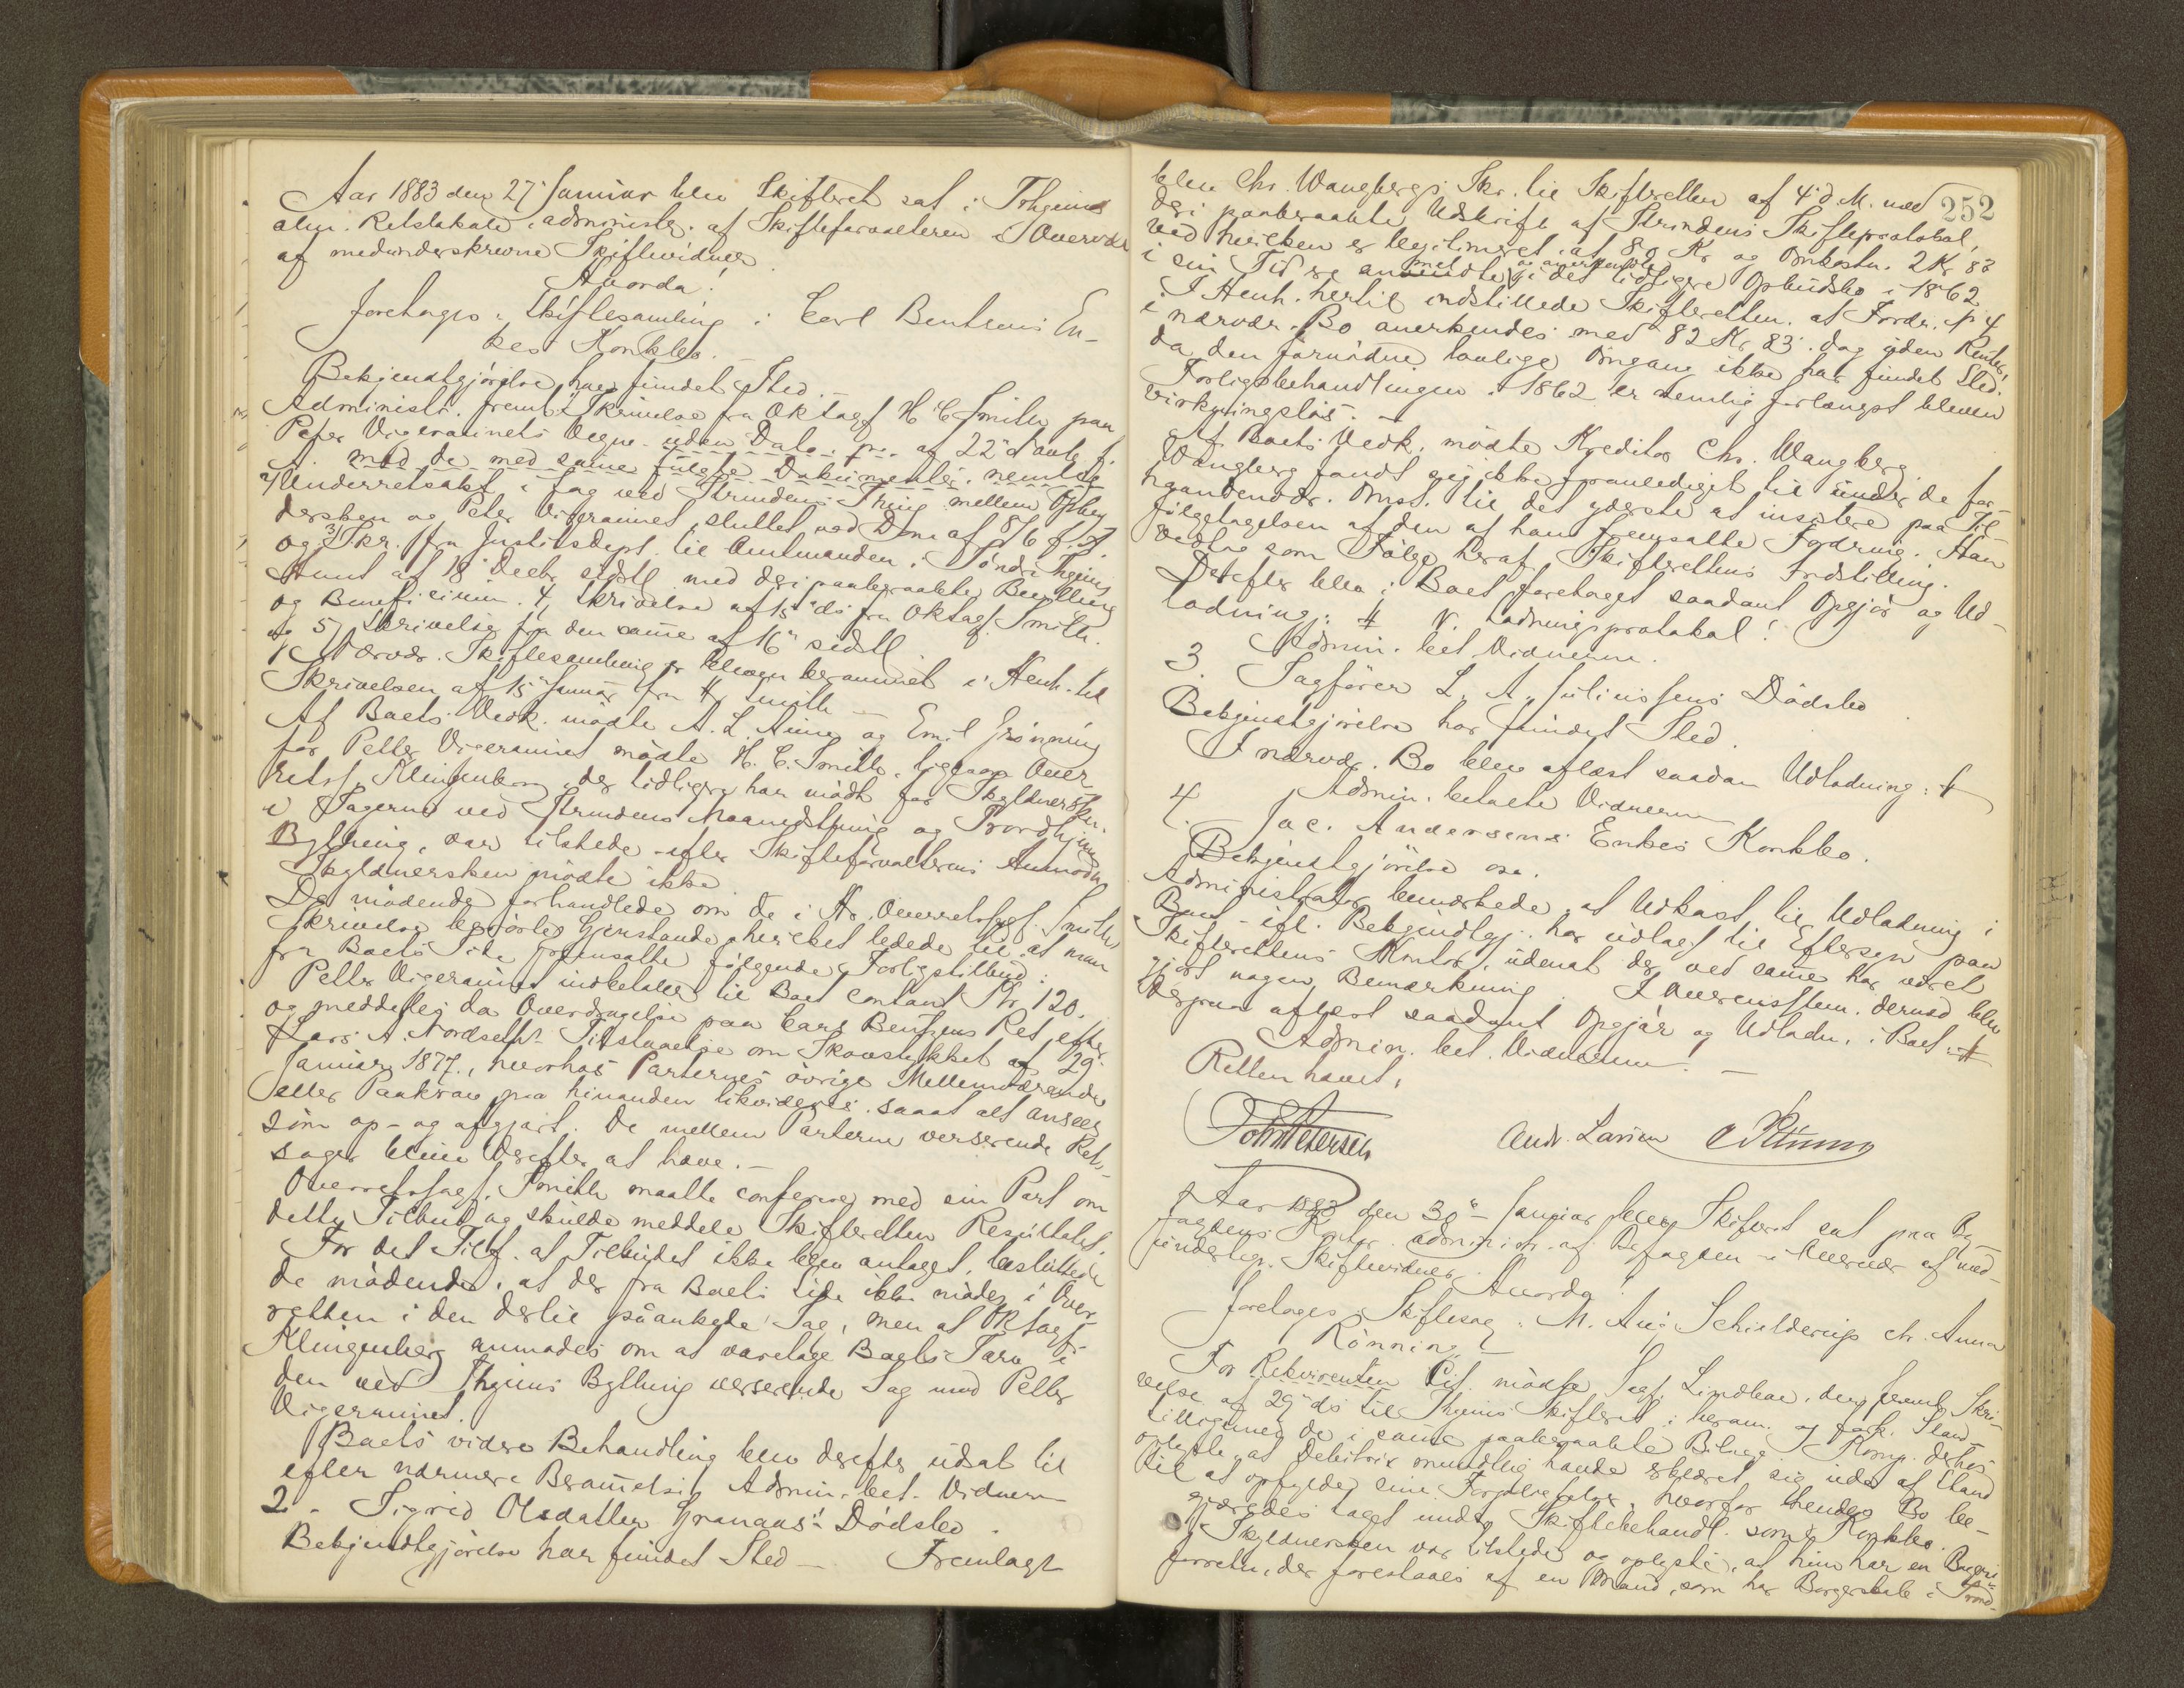 Aar 1883 den 27 Januar blev Skifteret sat i Thjems
alm. Retslokale, administr. af Skifteforvalteren i Overvær
af medunderskrevne Skiftevidner
Hvorda:
foretages: Skiftesamling i Carl Bentsens En-
kes Konkbo.
Bekjendtgjørelse har fundet Sted.
Administr. freml. 1 Skrivelse fra ORSagf H C Smith paa
Peter Vigerannets Vegne uden Dato pr. af 22 d
med de med samme fulgte Dokumenter, nemlig
2/ Underretsakt i Sag ved Strindens Thing mellem
dersken og Peter Vigerannet, sluttet ved Dom af 8/6 f. A.
og 3/ Skr. fra Justitsdept. til Amtmanden i Søndre Thjems
Amt af 18 Decbr sidstl med deri paaberaabte Bevilling
og Beneficium. 4, Skrivelse af 15 ds fra ORSagf. Smith
og 5/ Skrivelse fra den samme af 16 sidstl
Nærvær. Skiftesamling er bleven berammet i Henh. til
Skrivelsen af 15 Januar fra Hr Smith
Af Boets Vedk. mødte A. L. Aune og Emil Grønning
for Peter Vigerannet mødte H. C. Smith, ligesaa Over
retssf. Klingenberg, der tidligere har mødt for Skyldnersken
i Sagerne ved Strindens Maanedsthing og Trondhjems
Bything, var tilstede efter Skifteforvalterens Anmodn.
Skyldnersken mødte ikke
De mødende forhandlede om de i Hr. Overretssagf. Smiths
Skrivelse berørte Gjenstande, hvilket ledede til, at man
fra Boets Side fremsatte følgende Forligstilbud:
Petter Vigerannet indbetaler til Boet contant Kr. 120.
og meddeles da Overdragelse paa Carl Bentzens Ret efter
Lars A. Nordseths Tilstaaelse om Skovstykket af 29
Januar 1877, hvorhos Parternes øvrige Mellemværende
eller Paakrav paa hinanden likvideres, saaat alt ansees
som op- og afgjort. De mellem Parterne verserende Rets-
sager blive derefter at hæve.-
Overretssagf. Smith maatte conferere med sin Part om
dette Tilbud og skulde meddele Skifteretten Resultatet.
For det Tilf. at Tilbudet ikke blev antaget, besluttede
de mødende, at der fra Boets Side ikke møder i Over-
retten i den dertil påankede Sag, men at ORSagf.
Klingenberg anmodes om at varetage Boets Tarv i
den ved Thjems Bything verserende Sag mod Petter
Vigerannet.
Boets videre Behandling blev derefter udsat til
efter nærmere Berammelse. Admin. bet. Vidnerne
2 - Sigrid Olsdatter Granaas's Dødsbo.
Bekjendtgjørelse har fundet Sted - Fremlagt
252
blev Chr. Wangbergs Skr. til Skifteretten af 4 d. M. med
deri paaberaabte Udskrift af Strindens Skifteprotokol,
ved hvilken er legitimeret, at 80 Kr og Omkostn. 2 Kr 83
i sin Tid er anmeldte og anerkjendte i det tidligere Opbudsbo i 1862
I Henh. hertil indstillede Skifteretten, at Fordr. No 4
i nærvær. Bo anerkendes med 82 Kr. 83, dog uden Renter,
da den fornødne lovlige Omgang ikke har fundet Sted.
Forligsbehandlingen i 1862 er nemlig forlængst bleven
virkningsløs.-
Af Boets Vedk. mødte Kreditor Chr. Wangberg.
Wangberg fandt sig ikke foranlediget til under de for-
haandenvær. Omst. til det yderste at insistere paa Til-
følgetagelsen af den af ham fremsatte Fordring. Han
vedtog som Følge heraf Skifterettens Indstilling.
Derefter blev i Boet foretaget saadant Opgjør og Ud-
lodning: # v. Lodningsprotokol!
Admin. bet. Vidnerne.
3. Sagfører L. A. Juliussens Dødsbo
Bekjendtgjørelse har fundet Sted.
I nærvær. Bo blev oplæst saadan Udlodning: #
Admin. betalte Vidnerne
4. Jac. Andersens Enkes Konkbo.
Bekjendtgjørelse osv.
Administrator bemærkede, at Udkast til Udlodning i
Boet ifl. Bekjendtgj. har udlagt til Eftersyn paa
Skifterettens Kontor, udenat der ved samme har været
gjort nogen Bemærkning. I Overensstem. dermed blev
derpaa oplæst saadant Opgjør og Udlodn. i Boet: #
Admin. bet. Vidnerne.-
Retten hævet.
Andr. Larsen
Aar 1883 den 30 Januar blev Skifteret sat paa By-
fogdens Kontor, administr. af Byfogden i Overvær af med-
undertegn. Skiftevidner.
Hvorda!
foretages Skiftesag: M. Aug. Schjelderup ctr. Anna
Rønning
For Rekvirenten Cit. mødte Sagf. Lindboe, der freml. Skri-
velse af 29 ds til Thjems Skifteret i beram. og fork. Stand
tilligemed de i samme paaberaabte Bilage. Komp. derhos
oplyste, at Debitrix mundtlig havde erklæret sig ude af Stand
til at opfylde sine Forpligtelser, hvorfor hendes Bo be-
gjæredes taget under Skiftebehandl. som Konkbo.
Skyldnersken var tilstede og oplyste, at hun har en Bageri-
forretn., der forestaaes af en Mand, som har Borgerskab i Trond-